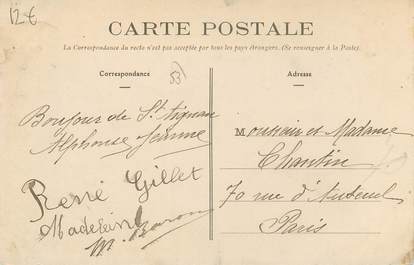 12€
CARTE POSTALE
La Correspondance du recto n'est pas acceptée par tous les pays étrangers. (Se renseigner à la Poste).
Correspondance
53
Adresse
Bonjour de St Aignan
Alphonse Jeanne
René Gillet
Madeleine
M. Baron
Monsieur et Madame
Chantin
70 rue d'Auteuil
Paris